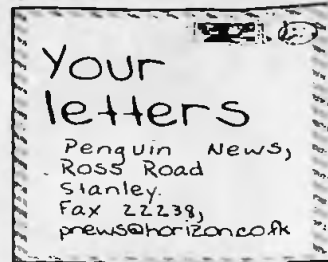 Your
letters
Penguin News,
Ross Road
Stanley.
Fax 22238,
pnews@horizon.co.fk